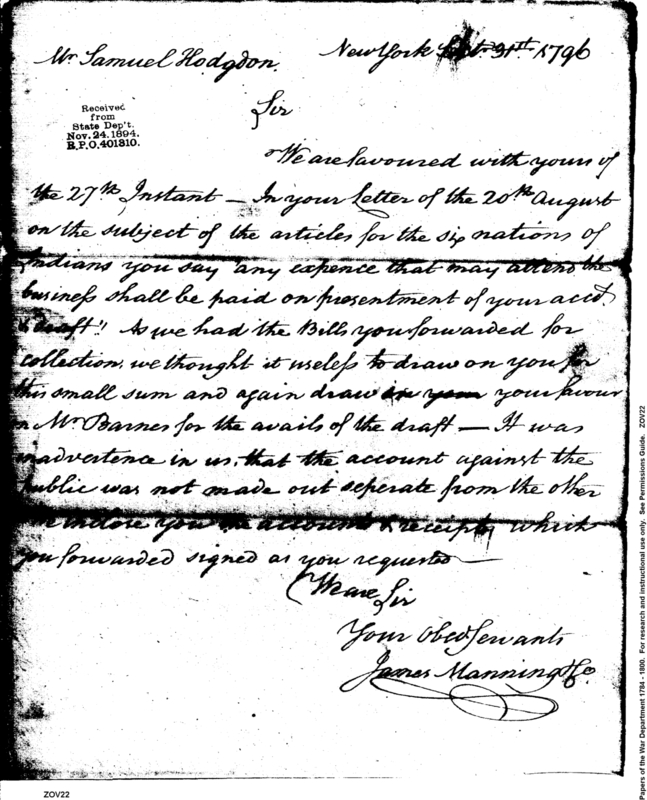 Mr Samuel Hodgdon.
New York Sept. 31st. 1796
Received
from
State Dep't.
Nov. 24. 1894.
R.P.O. 401810.
Sir
We are favoured with yours of
the 27th Instant — In your Letter of the 20th August
on the subject of the articles for the six nations of
Indians you say "any expence that may attend the
business shall be paid on presentment of your acct.
& draft"! As we had the Bills you forwarded for
collection, we thought it useless to draw on you for
this small sum and again draw in your favour
on Mr Barnes for the avails of the draft — It was
inadvertence in us, that the account against the
Public was not made out seperate from the other
We inclose you the accounts & receipts which
you forwarded signed as you requested —
We are Sir
Your Obed Servants
James Manning & Co.
ZOV22
Papers of the War Department 1784 - 1800. For research and instructional use only. See Permissions Guide. ZOV22